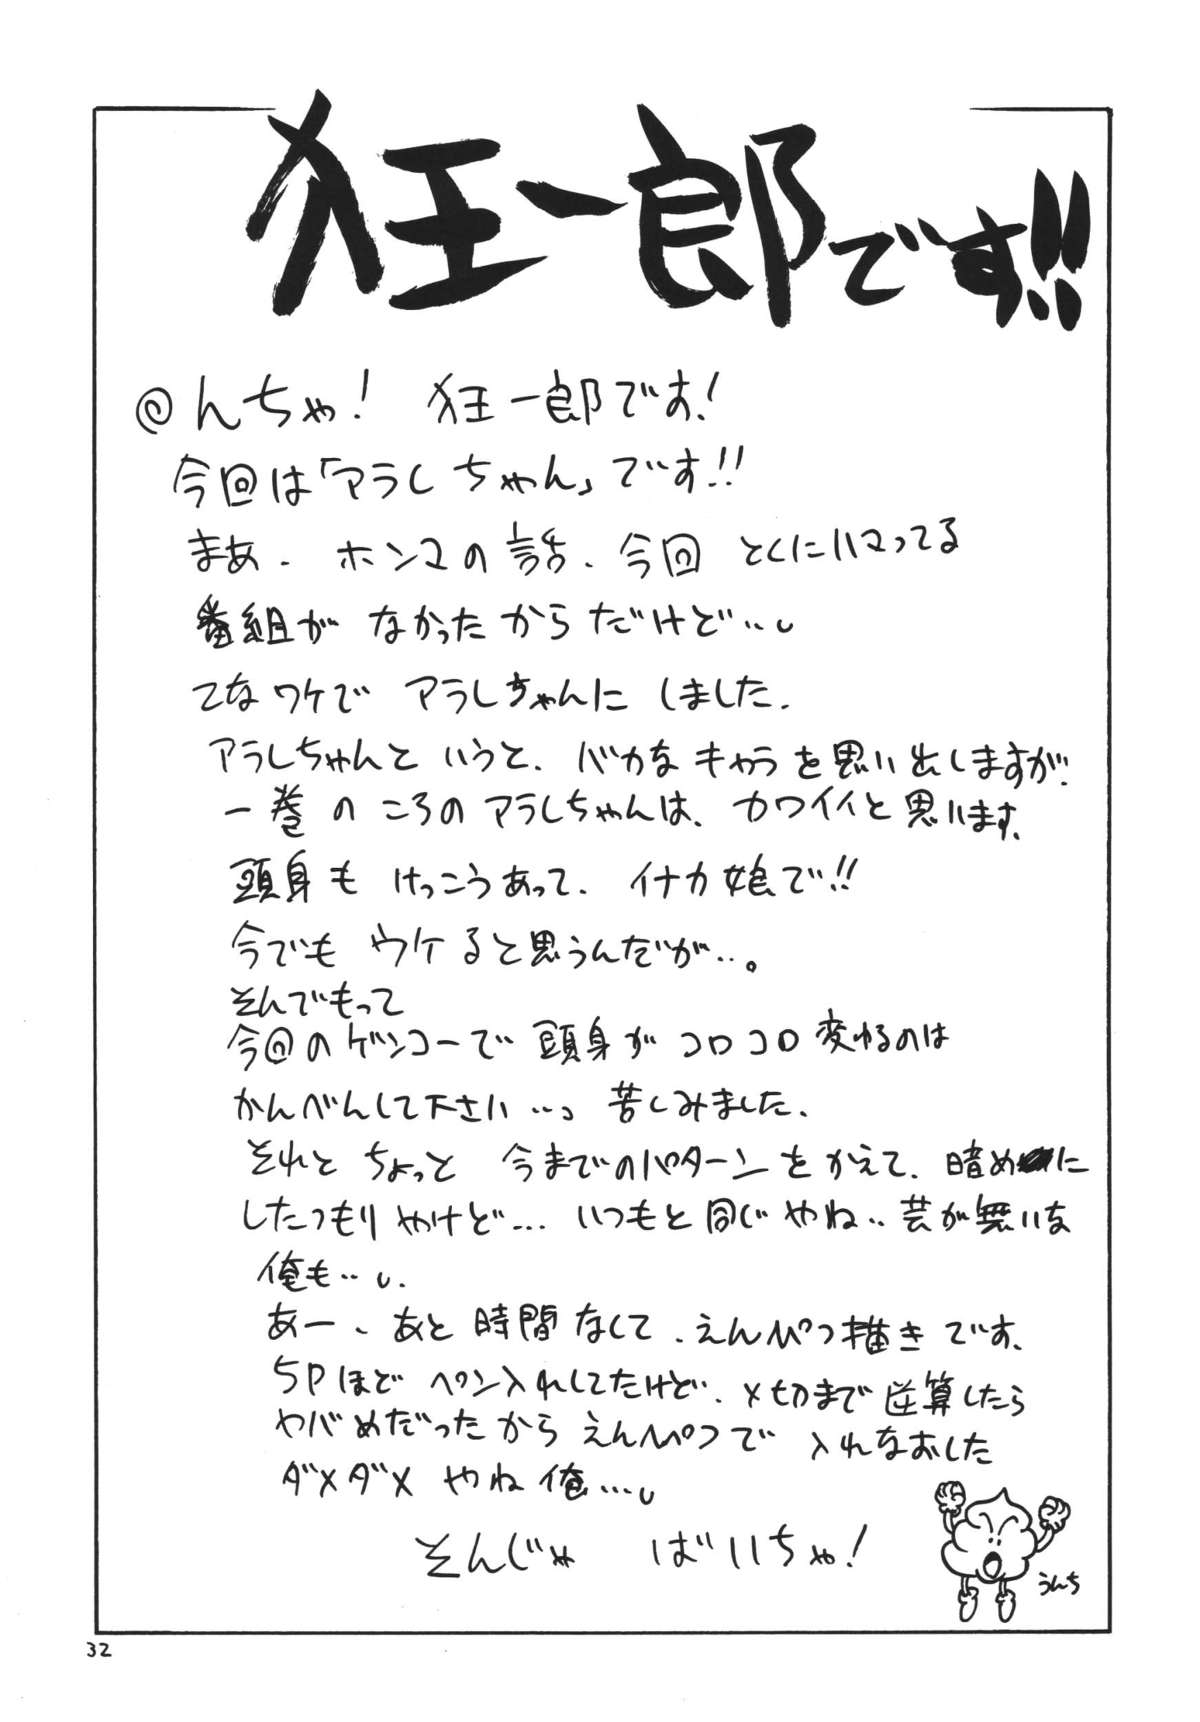 狂一郎です!!
@んちゃ! 狂一郎です!
今回は「アラしちゃん」です!!
まあ、ホンマの話、今回とくにハマってる
番組がなかったからだけど‥。
てなワケでアラしちゃんにしました。
アラしちゃんというと、バカなキャラを思い出しますが、
一巻のころのアラしちゃんは、カワイイと思います。
頭身もけっこうあって、イナカ娘で!!
今でもウケると思うんだが‥。
そんでもって
今回のゲンコーで頭身がコロコロ変わるのは
かんべんして下さい‥。苦しみました。
それとちょっと今までのパターンをかえて、暗めに
したつもりやけど… いつもと同じやね‥芸が無いな
俺も‥。
あー、あと時間なくて、えんぴつ描きです。
5Pほどペン入れしてたけど、〆切まで逆算したら
ヤバめだったからえんぴつで入れなおした
ダメダメやね俺…。
そんじゃ ばいちゃ!
うんち
32